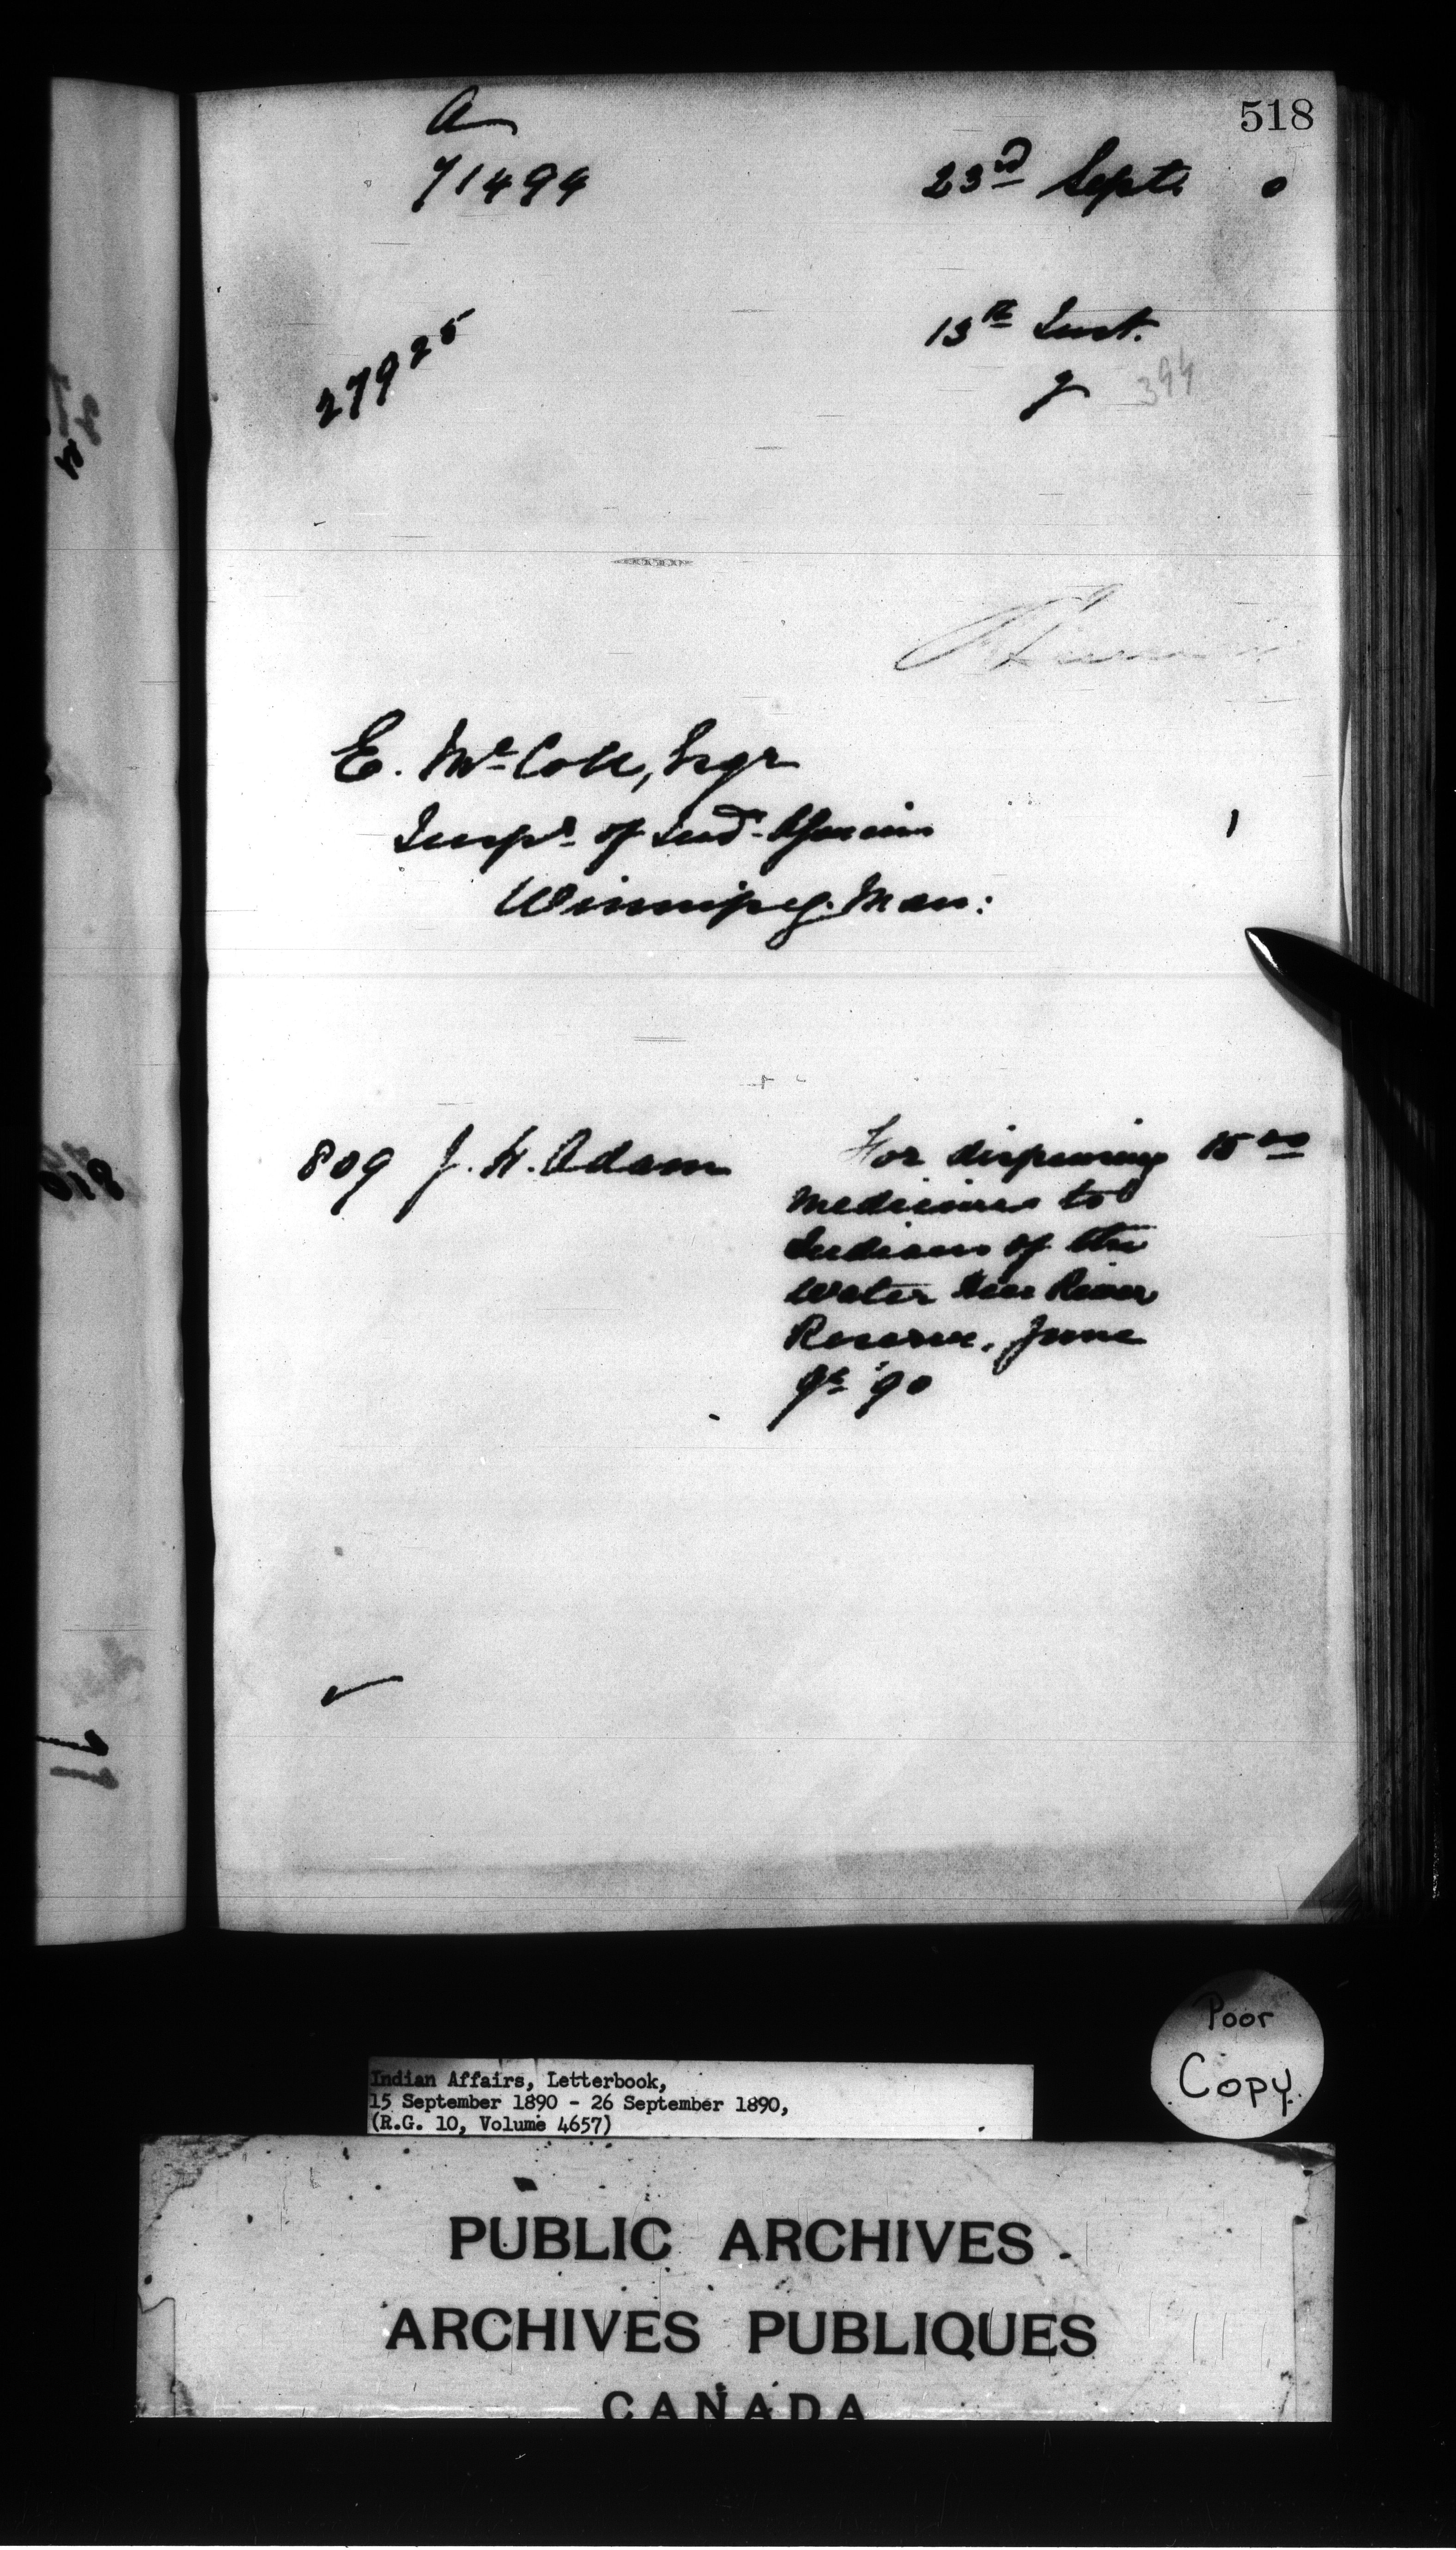 518
a
71494
23rd Sept. 0
27925
13th Inst.
394
E. McColl, Esqr
Inspr. of Ind. Agencies
Winnipeg. Man:
1
809 J. H. Adam For dispensing 15 00
medicines to
Indians of the
Water Hen River
Reserve. June
qr '90
Poor
Copy.
Indian Affairs, Letterbook,
15 September 1890 - 26 September 1890,
(R.G. 10, Volume 4657)
PUBLIC ARCHIVES
ARCHIVES PUBLIQUES
CANADA